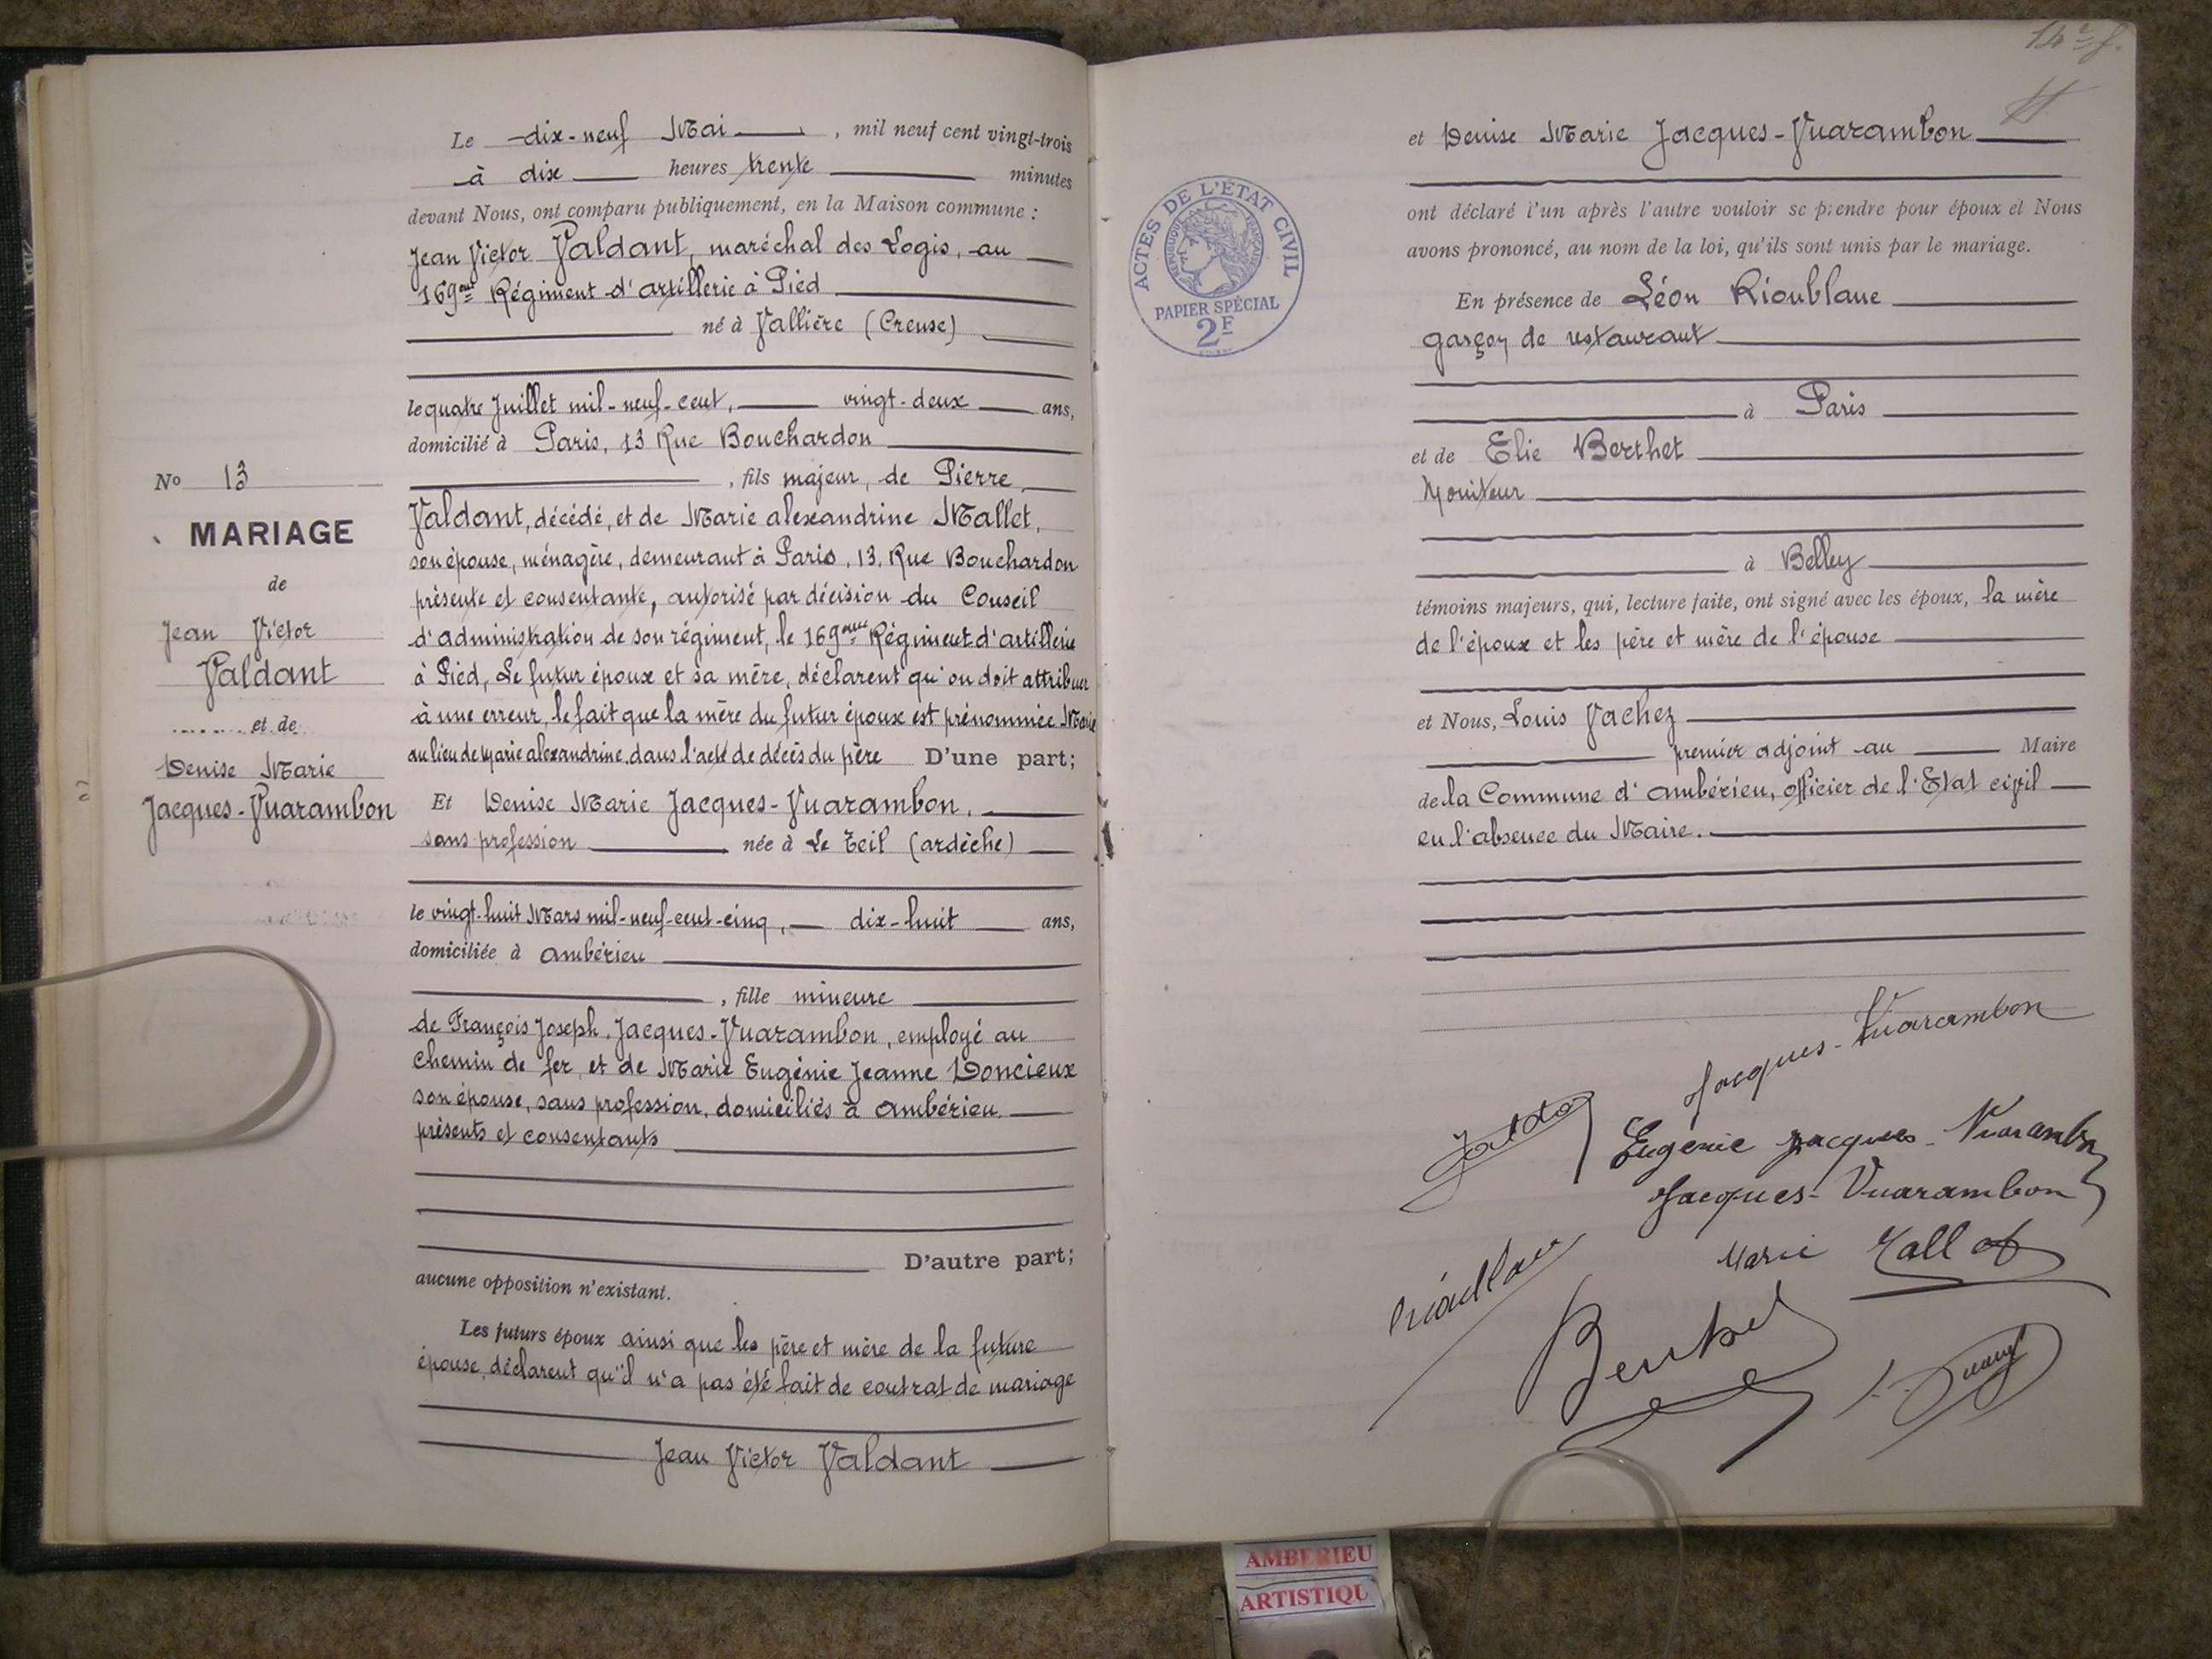 Le dix-neuf Mai, mil neuf cent vingt-trois
à dix heures trente minutes
devant Nous, ont comparu publiquement, en la Maison commune :
Jean Victor Valdant, maréchal des Logis, au
169eme Régiment d'artillerie à Pied
né à Vallière (Creuse)
le quatre Juillet mil-neuf-cent, vingt-deux ans,
domicilié à Paris, 13 Rue Bouchardon
, fils majeur, de Pierre
Valdant, décédé, et de Marie alexandrine Mallet,
son épouse, ménagère, demeurant à Paris, 13, Rue Bouchardon
présente et consentante, autorisé par décision du Conseil
d'administration de son régiment, le 169eme Régiment d'artillerie
à Pied, Le futur époux et sa mère, déclarent qu'on doit attribuer
à une erreur, le fait que la mère du futur époux est prénommée Marie
au lieu de Marie alexandrine, dans l'acte de décès du père D'une part;
No 13
MARIAGE
de
Jean Victor
Valdant
et de
Denise Marie
Jacques-Vuarambon
Et Denise Marie Jacques-Vuarambon,
sans profession née à Le Teil (ardèche)
le vingt-huit Mars mil-neuf-cent-cinq, dix-huit ans,
domiciliée à ambérieu
, fille mineure
de François Joseph, Jacques-Vuarambon, employé au
chemin de fer, et de Marie Eugénie Jeanne Doncieux
son épouse, sans profession, domiciliés à ambérieu.
présents et consentants
D'autre part;
aucune opposition n'existant.
Les futurs époux ainsi que les père et mère de la future
épouse, déclarent qu'il n'a pas été fait de contrat de mariage
Jean Victor Valdant
et Denise Marie Jacques-Vuarambon
ont déclaré l'un après l'autre vouloir se prendre pour époux et Nous
avons prononcé, au nom de la loi, qu'ils sont unis par le mariage.
ACTES DE L'ÉTAT CIVIL
RÉPUBLIQUE FRANÇAISE
PAPIER SPÉCIAL
2F
En présence de Léon Rioublanc
garçon de restaurant
à Paris
et de Elie Berthet
Moniteur
à Belley
témoins majeurs, qui, lecture faite, ont signé avec les époux, la mère
de l'époux et les père et mère de l'épouse
et Nous, Louis Vachez
premier adjoint au Maire
de la Commune d'ambérieu, officier de l'Etat civil
en l'absence du Maire.
Jacques-Vuarambon
Eugenie Jacques-Vuarambon
Jacques-Vuarambon
Marie Mallet
Berthet
AMBERIEU
ARTISTIQU